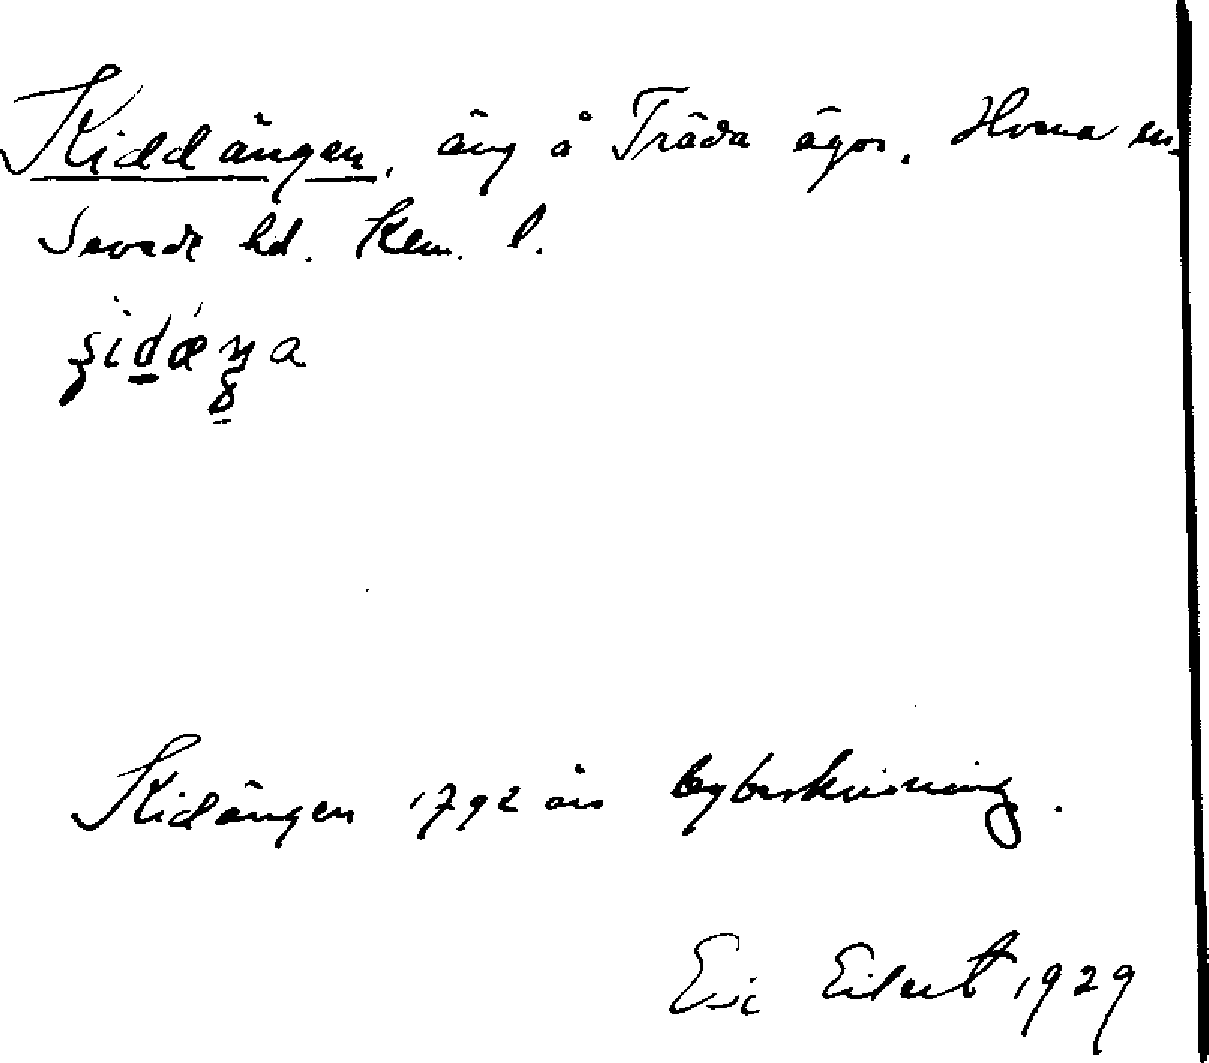 Kiddängen, äng å Träda ägor. Horna sn.
Sevede hd. Kem. l.
Kidängen 1792 års bybeskrivning.
Eric Eilert 1929